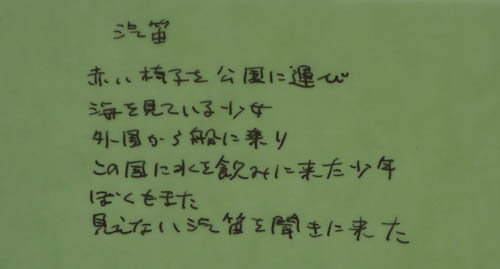 汽笛
赤い椅子を公園に運び
海を見ている少女
外国から船に乗り
この国に水を飲みに来た少年
ぼくもまた
見えない汽笛を聞きに来た